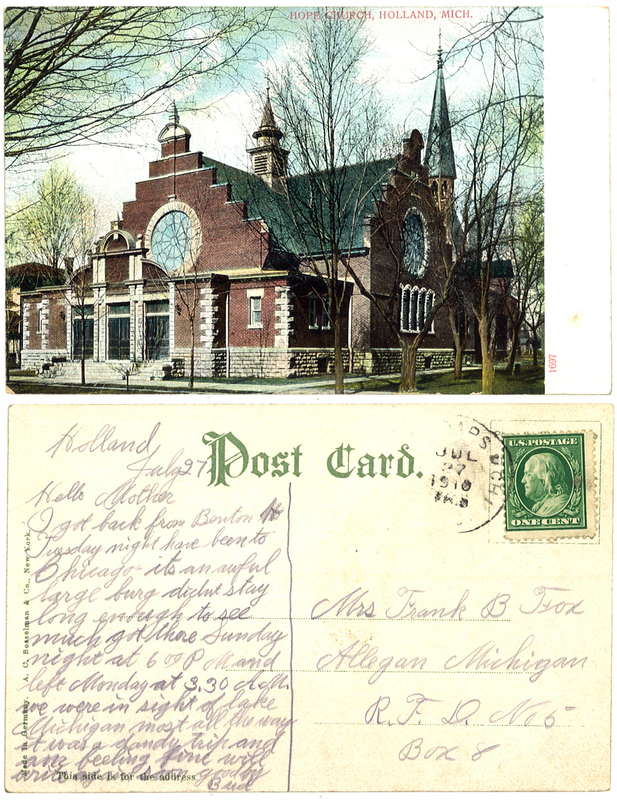 HOPE CHURCH, HOLLAND, MICH.
1697
Post Card.
JUL
27
1910
U.S. POSTAGE
ONE CENT
Holland
July 27
Hello Mother
I got back from Benton H
Tuesday night have been to
Chicago its an awful
large burg didnt stay
long enough to see
much got there Sunday
night at 6 P M and
left Monday at 3,30 A.M.
we were in sight of lake
Michigan most all the way
it was a dandy trip and
feeling fine will
write
Bud
Mrs Frank B Fox
Allegan Michigan
R. F. D. No 5
Box 8
This side is for the address.
Made in Germany. A. C. Bosselman & Co., New York.